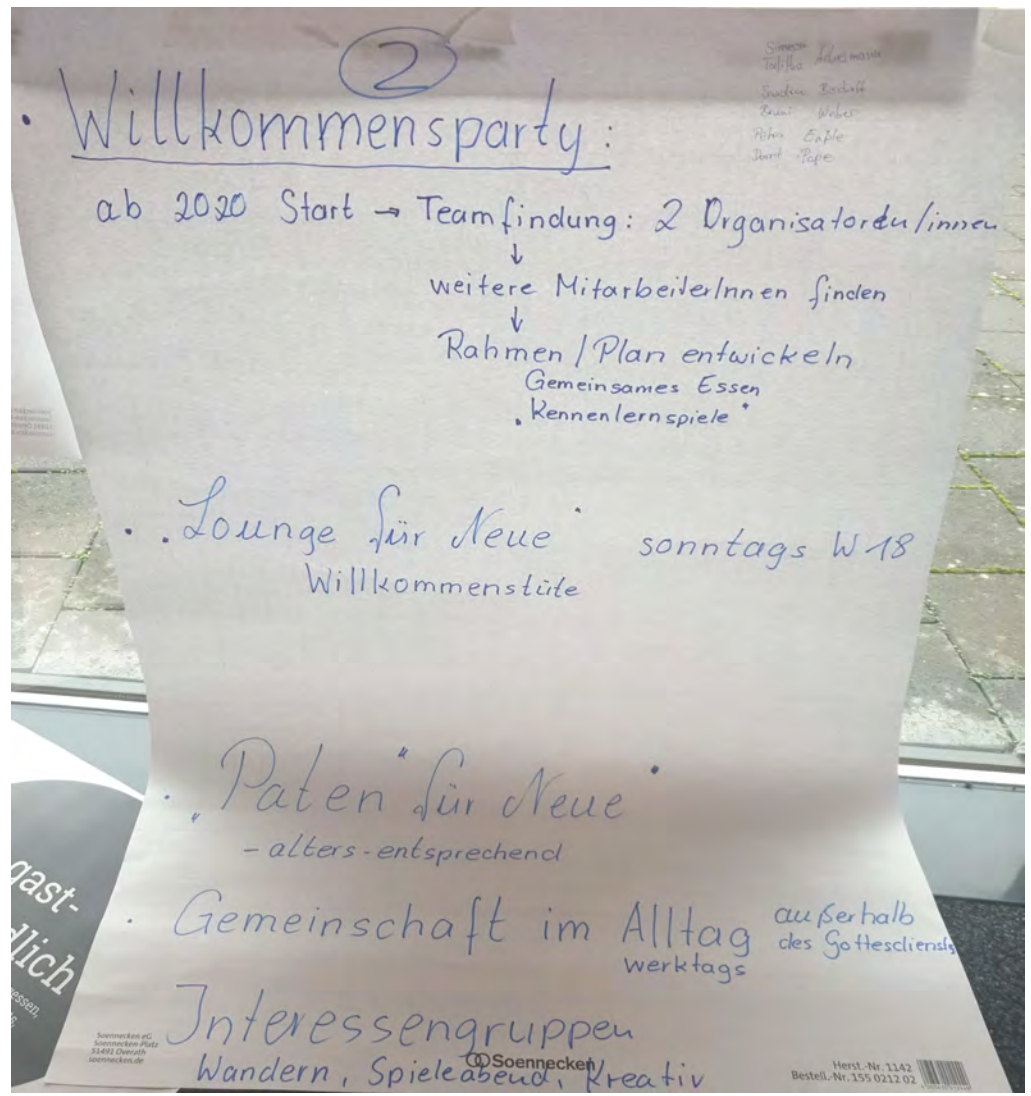 2
· Willkommensparty:
Talitha
Weber
Pape
ab 2020 Start → Teamfindung: 2 Organisatoren/innen
↓
weitere MitarbeiterInnen finden
↓
Rahmen / Plan entwickeln
Gemeinsames Essen
„Kennenlernspiele"
· „Lounge für Neue" sonntags W18
Willkommenstüte
· „Paten" für Neue
- alters-entsprechend
· Gemeinschaft im Alltag außerhalb
des Gottesdiensts
werktags
Interessengruppen
Wandern, Spieleabend, Kreativ
gast-
dlich
essen,
Soennecken eG
Soennecken-Platz
51491 Overath
soennecken.de
Soennecken
Herst.-Nr. 1142
Bestell.-Nr. 155 0212 02